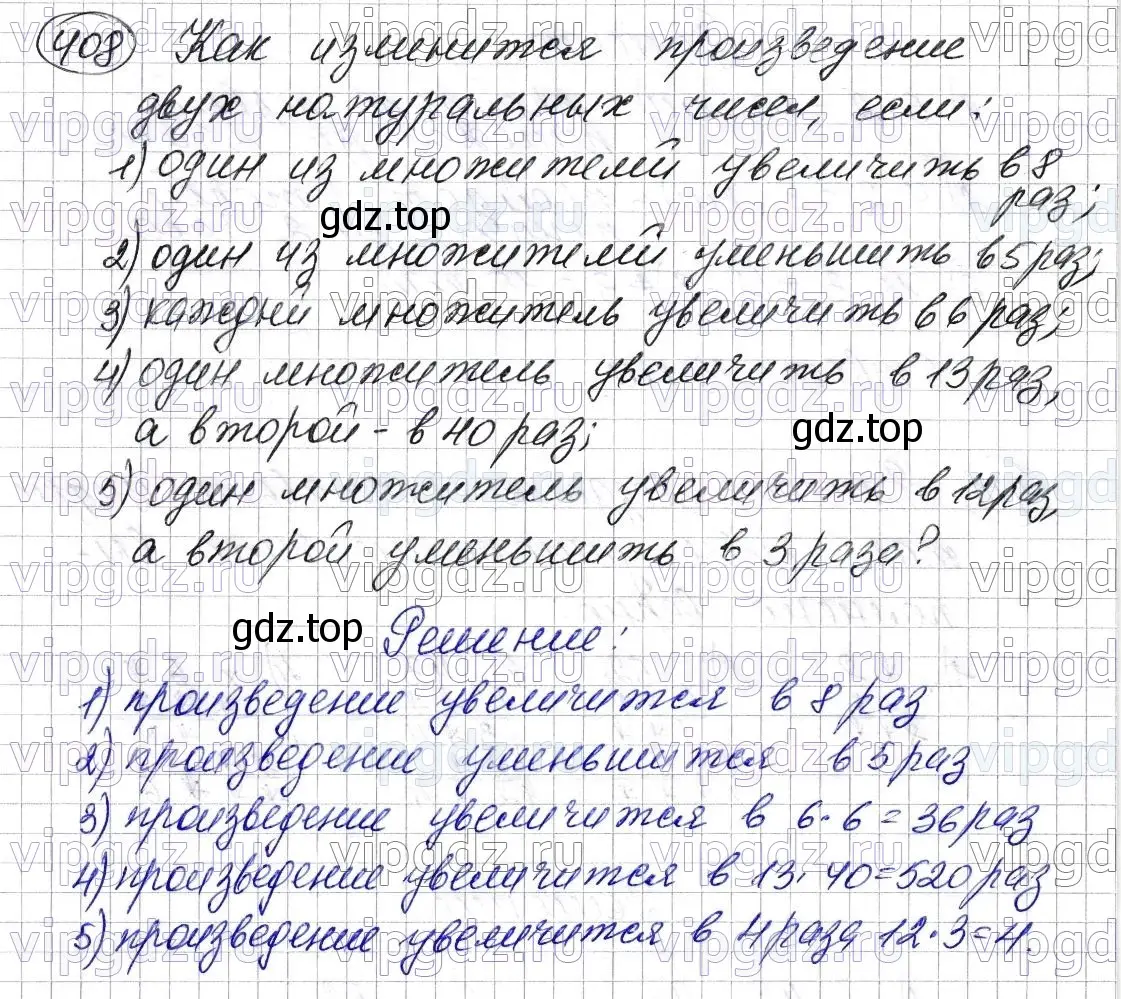 408 Как изменится произведение
двух натуральных чисел, если:
1) один из множителей увеличить в 8
раз;
gdz.top
2) один из множителей уменьшить в 5 раз;
3) каждый множитель увеличить в 6 раз;
4) один множитель увеличить в 13 раз,
а второй - в 40 раз;
gdz.top
5) один множитель увеличить в 12 раз,
а второй уменьшить в 3 раза?
gdz.top
Решение:
1) произведение увеличится в 8 раз
2) произведение уменьшится в 5 раз
3) произведение увеличится в 6·6=36 раз
4) произведение увеличится в 13·40=520 раз
5) произведение увеличится в 4 раза 12·3=4.